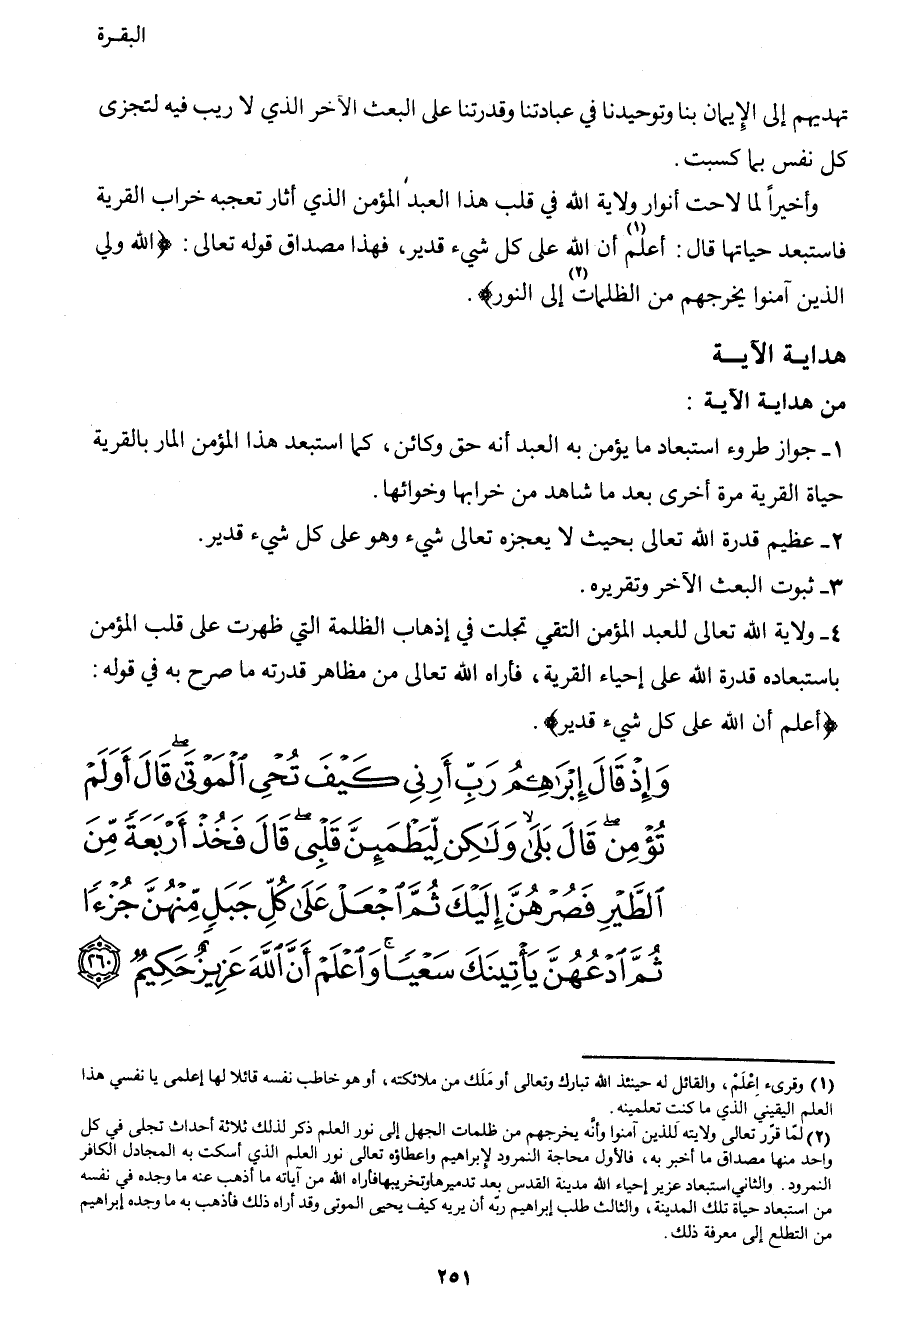 البقـرة
تهديهم إلى الإيمان بنا وتوحيدنا في عبادتنا وقدرتنا على البعث الآخر الذي لا ريب فيه لتجزى
كل نفس بما كسبت .
وأخيراً لما لاحت أنوار ولاية الله في قلب هذا العبد المؤمن الذي أثار تعجبه خراب القرية
فاستبعد حياتها قال : أعلم(١) أن الله على كل شيء قدير ، فهذا مصداق قوله تعالى : ﴿الله ولي
الذين آمنوا يخرجهم من الظلمات(٢) إلى النور﴾ .
هدايـة الآيـــة
من هدايـة الآيـة :
١ـ جواز طروء استبعاد ما يؤمن به العبد أنه حق وكائن ، كما استبعد هذا المؤمن المار بالقرية
حياة القرية مرة أخرى بعد ما شاهد من خرابها وخوائها .
٢ـ عظيم قدرة الله تعالى بحيث لا يعجزه تعالى شيء وهو على كل شيء قدير .
٣ـ ثبوت البعث الآخر وتقريره .
٤ـ ولاية الله تعالى للعبد المؤمن التقي تجلت في إذهاب الظلمة التي ظهرت على قلب المؤمن
باستبعاده قدرة الله على إحياء القرية ، فأراه الله تعالى من مظاهر قدرته ما صرح به في قوله :
﴿أعلم أن الله على كل شيء قدير﴾ .
وَإِذْ قَالَ إِبْرَٰهِـۧمُ رَبِّ أَرِنِي كَيْفَ تُحْيِ ٱلْمَوْتَىٰ ۖ قَالَ أَوَلَمْ
تُؤْمِن ۖ قَالَ بَلَىٰ وَلَٰكِن لِّيَطْمَئِنَّ قَلْبِي ۖ قَالَ فَخُذْ أَرْبَعَةً مِّنَ
ٱلطَّيْرِ فَصُرْهُنَّ إِلَيْكَ ثُمَّ ٱجْعَلْ عَلَىٰ كُلِّ جَبَلٍ مِّنْهُنَّ جُزْءًا
ثُمَّ ٱدْعُهُنَّ يَأْتِينَكَ سَعْيًا ۚ وَٱعْلَمْ أَنَّ ٱللَّهَ عَزِيزٌ حَكِيمٌ ٢٦٠
(١) وقرىء إعْلَمْ ، والقائل له حينئذ الله تبارك وتعالى أو مَلَك من ملائكته ، أو هو خاطب نفسه قائلا لها إعلمى يا نفسي هذا
العلم اليقيني الذي ما كنت تعلمينه .
(٢) لمّا قرّر تعالى ولايته للذين آمنوا وأنَّه يخرجهم من ظلمات الجهل إلى نور العلم ذكر لذلك ثلاثة أحداث تجلى في كل
واحد منها مصداق ما أخبر به ، فالأول محاجة النمرود لإبراهيم واعطاؤه تعالى نور العلم الذي أسكت به المجادل الكافر
النمرود . والثاني استبعاد عزير إحياء الله مدينة القدس بعد تدميرها وتخريبها فأراه الله من آياته ما أذهب عنه ما وجده في نفسه
من استبعاد حياة تلك المدينة ، والثالث طلب إبراهيم ربّه أن يريه كيف يحيى الموتى وقد أراه ذلك فأذهب به ما وجده إبراهيم
من التطلع إلى معرفة ذلك .
٢٥١